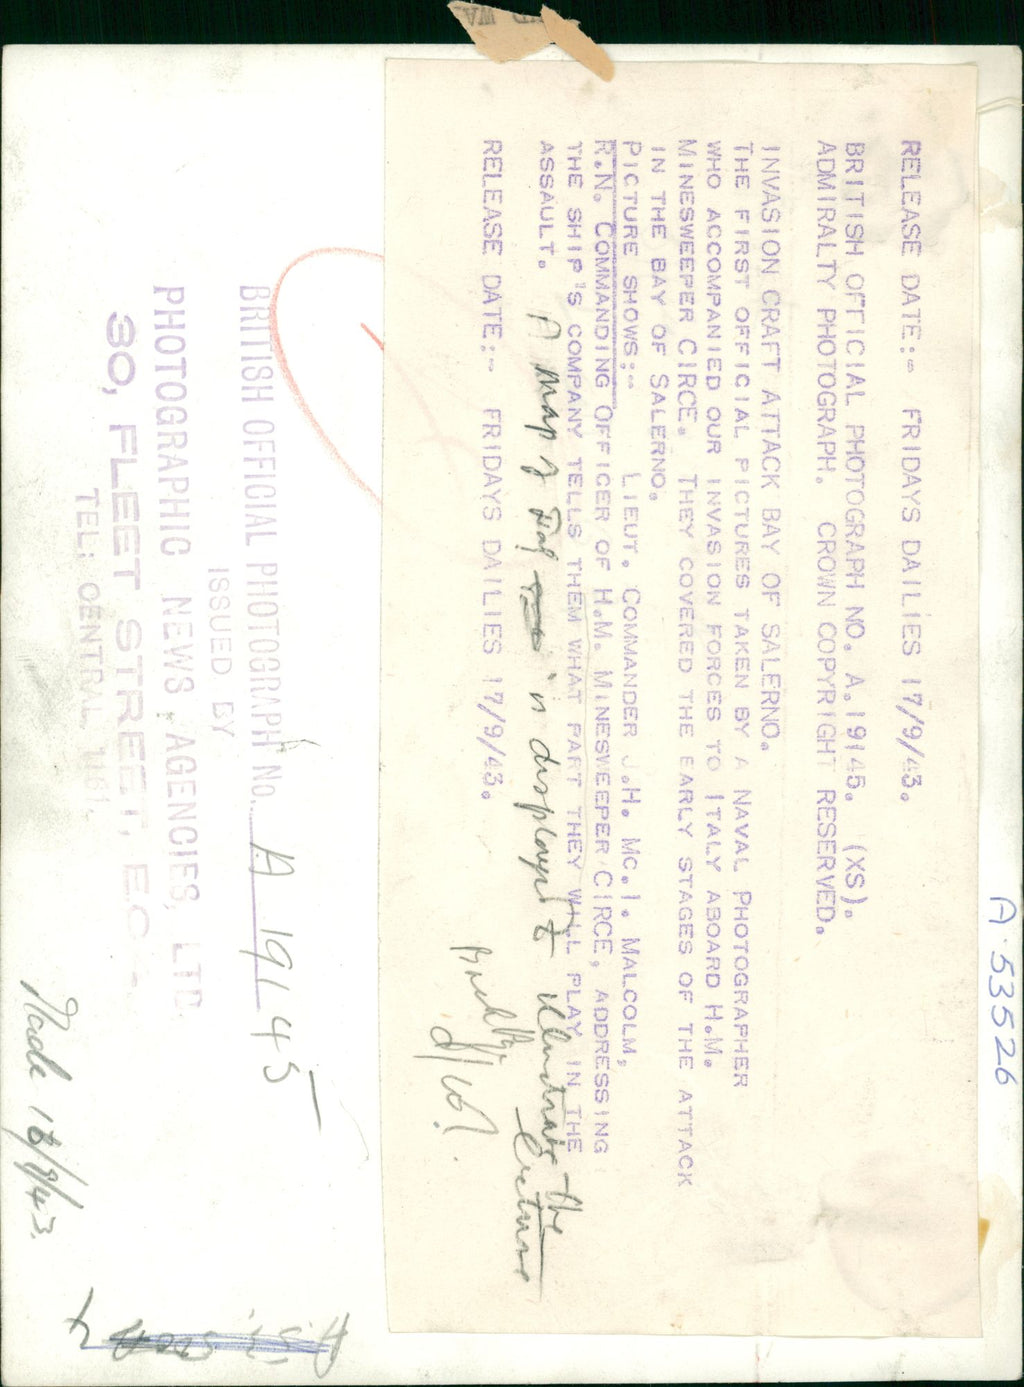 RELEASE DATE:- FRIDAYS DAILIES 17/9/43.
BRITISH OFFICIAL PHOTOGRAPH NO. A.19145. (XS).
ADMIRALTY PHOTOGRAPH. CROWN COPYRIGHT RESERVED.
INVASION CRAFT ATTACK BAY OF SALERNO.
THE FIRST OFFICIAL PICTURES TAKEN BY A NAVAL PHOTOGRAPHER
WHO ACCOMPANIED OUR INVASION FORCES TO ITALY ABOARD H.M.
MINESWEEPER CIRCE. THEY COVERED THE EARLY STAGES OF THE ATTACK
IN THE BAY OF SALERNO.
PICTURE SHOWS:- LIEUT. COMMANDER J.H. MC.I. MALCOLM,
R.N. COMMANDING OFFICER OF H.M. MINESWEEPER CIRCE, ADDRESSING
THE SHIP'S COMPANY TELLS THEM WHAT PART THEY WILL PLAY IN THE
ASSAULT. A map of is displayed to illustrate the
lecture
RELEASE DATE:- FRIDAYS DAILIES 17/9/43.
BRITISH OFFICIAL PHOTOGRAPH NO. A 19145
ISSUED BY
PHOTOGRAPHIC NEWS AGENCIES, LTD.
30, FLEET STREET, E.C.
TEL: CENTRAL 1161.
Made 16/9/43.
A.53526